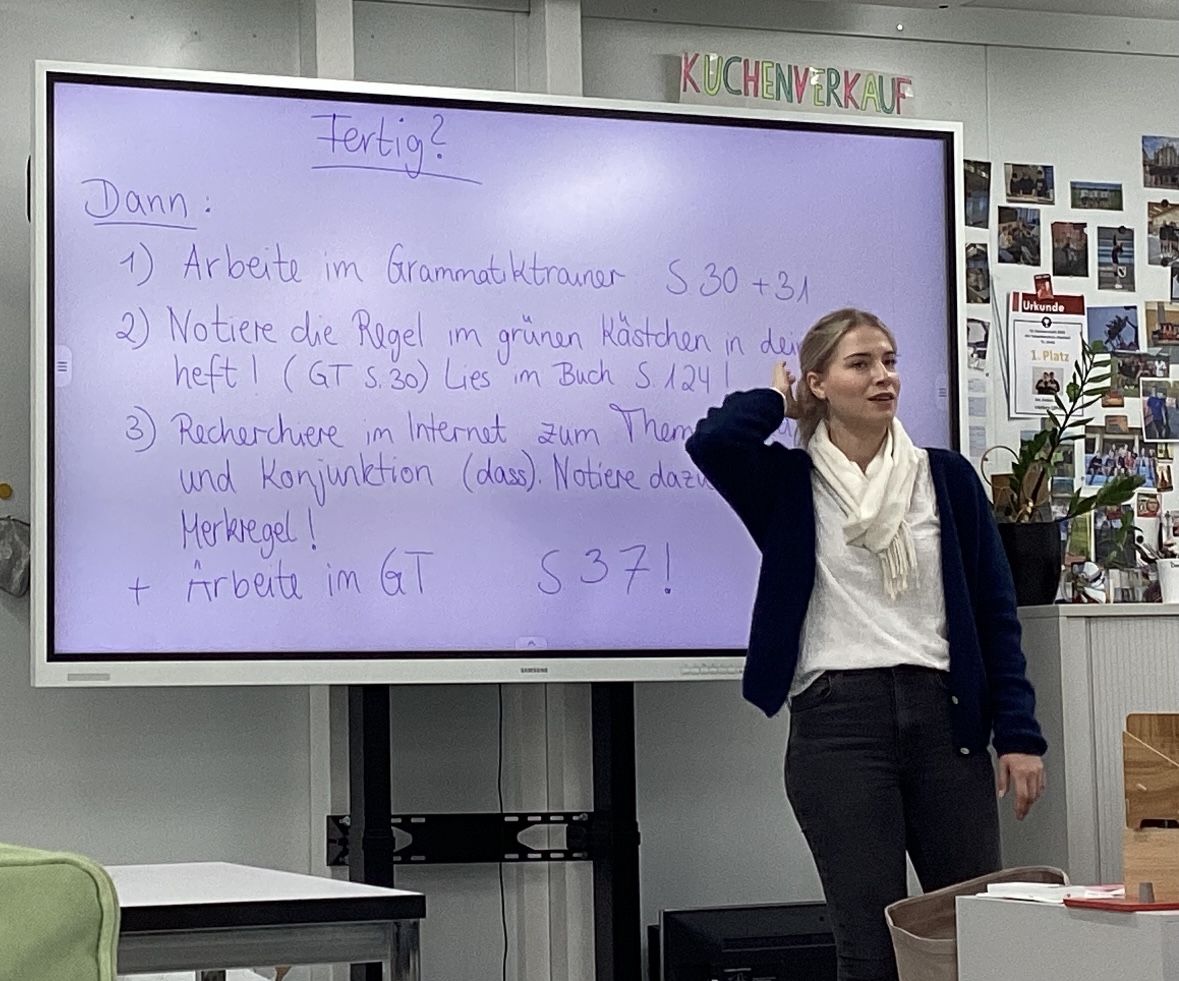 KUCHENVERKAUF
Fertig?
Dann:
1) Arbeite im Grammatiktrainer S. 30 + 31
2) Notiere die Regel im grünen Kästchen in
heft! (GT S. 30) Lies im Buch S. 124!
3) Recherchiere im Internet zum
und Konjunktion (dass). Notiere dazu
Merkregel!
+ Arbeite im GT S 37!
SAMSUNG
Urkunde
1. Platz